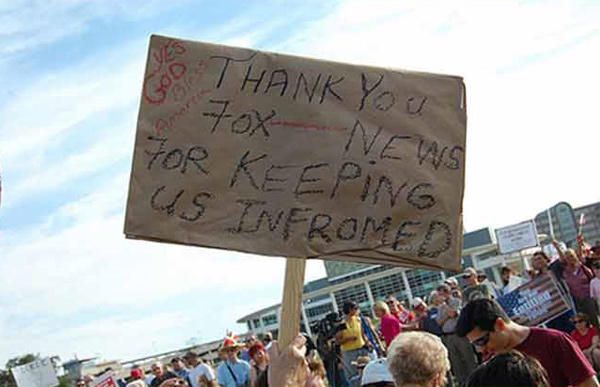 YES
GOD
Bless
America
THANK YOU
FOX NEWS
FOR KEEPING
US INFROMED
Entitled